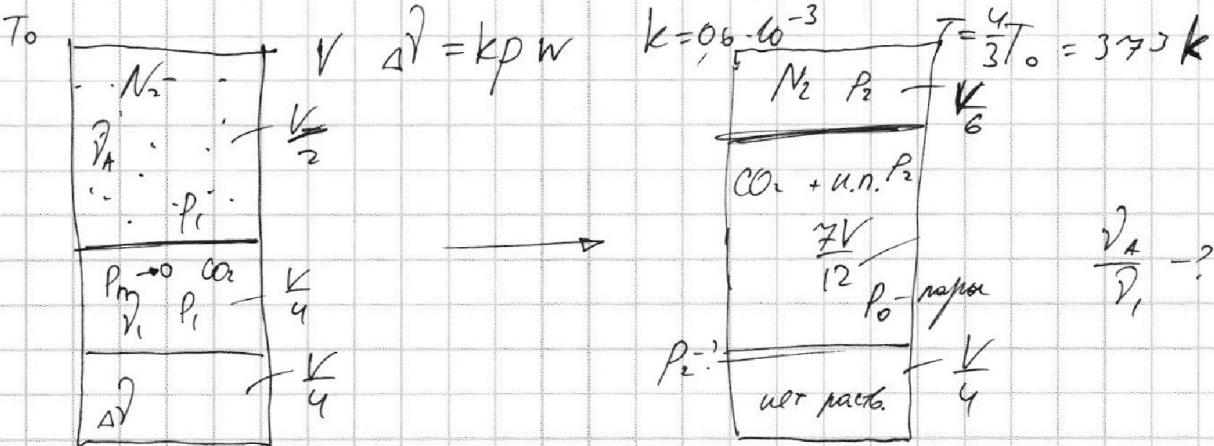 T₀
V Δν = kpw
k = 0,6·10⁻³
T = 4/3 T₀ = 373 k
N₂
ν_A
V/2
P₁
P_т → 0 CO₂
ν₁ P₁
V/4
Δν
V/4
N₂ P₂
V/6
CO₂ + н.п. P₂
7V/12
P₀ - пары
P₂ - ?
нет раств.
V/4
ν_A/ν₁ - ?